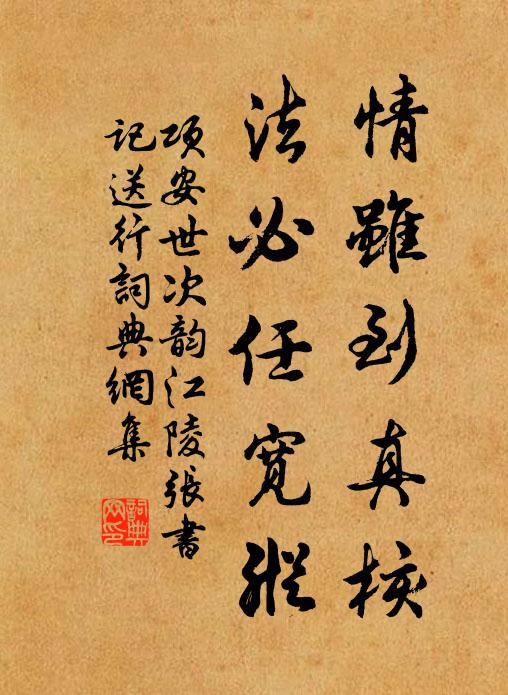 情雖到真核
法必任寬縱
項安世次韵江陵張書
記送行詞典網集
詞典網印